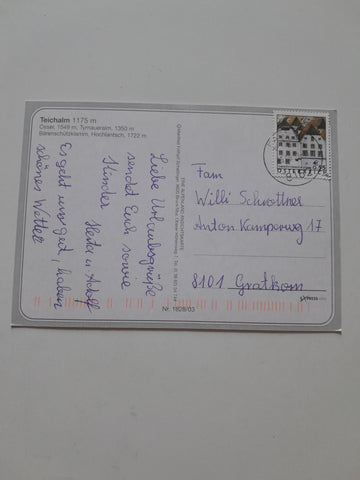 Teichalm 1175 m
Osser, 1548 m, Tyrnaueralm, 1350 m
Bärenschützklamm, Hochlantsch, 1722 m
Liebe Urlaubsgrüße
sendet Euch sowie
Kinder Herta u. Adolf
Es geht uns gut, haben
schönes Wetter
Fam
Willi Schrottner
Anton Kamperweg 17
8101 Gratkorn
Nr. 1828/03